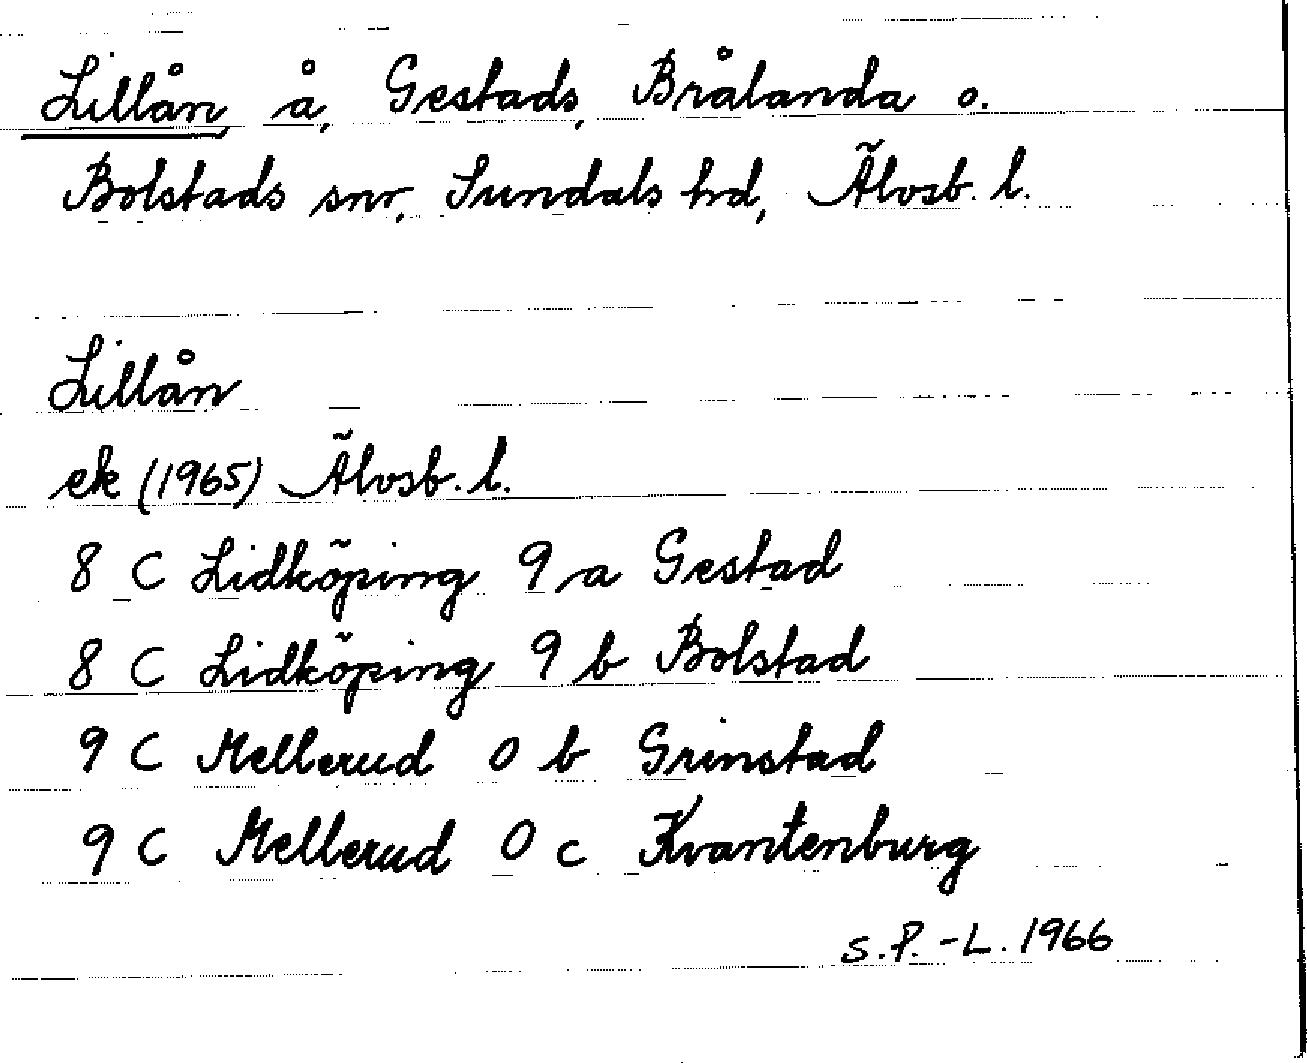 Lillån, å, Gestads, Brålanda o.
Bolstads snr, Sundals hd, Älvsb. l.
Lillån
ek (1965) Älvsb. l.
8 C Lidköping 9 a Gestad
8 C Lidköping 9 b Bolstad
9 C Mellerud 0 b Grinstad
9 C Mellerud 0 c Kvantenburg
S.P.-L. 1966